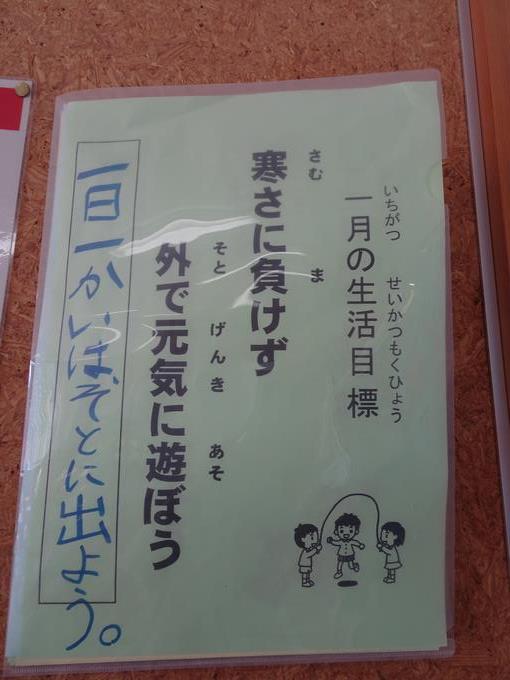 いちがつ せいかつもくひょう
一月の生活目標
さむ ま
寒さに負けず
そと げんき あそ
外で元気に遊ぼう
一日一かいはそとに出よう。